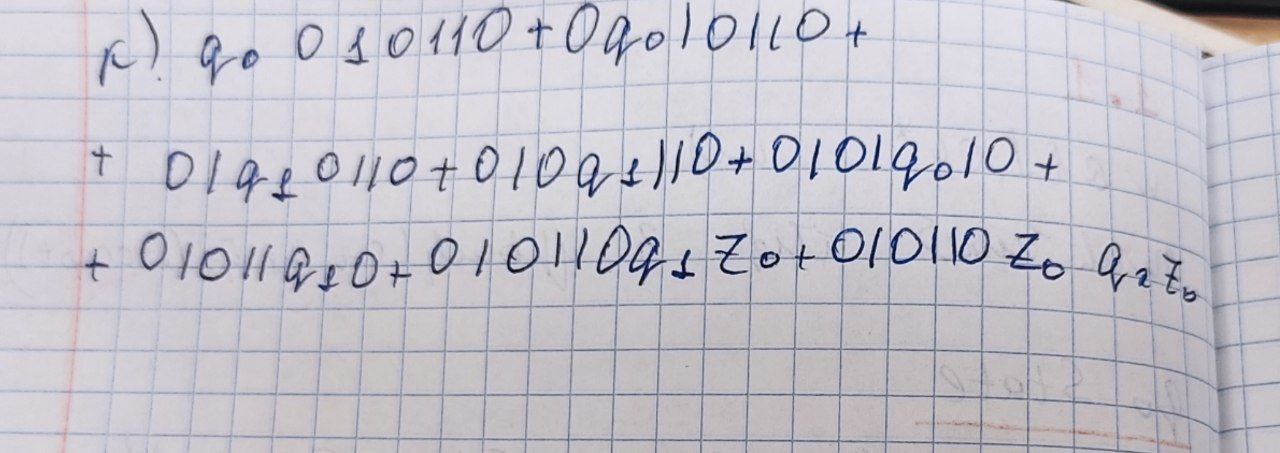 к) q₀ 010110 + 0q₀10110 +
+ 01q₁0110 + 010q₁110 + 0101q₀10 +
+ 01011q₁0 + 010110q₁z₀ + 010110z₀ q₂z₀